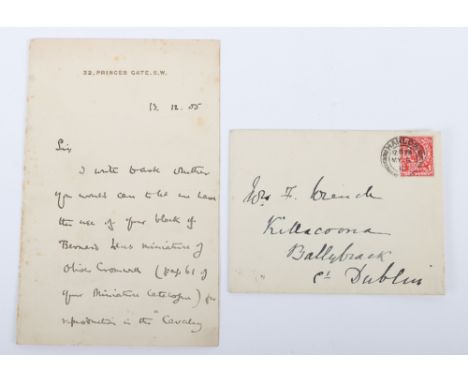 32, PRINCES GATE. S.W.
13. 12. 05
Sir
I write to ask whether
you would care to let me have
the use of your block of
Bernard Lens miniature of
Oliver Cromwell (page 61 of
your Miniature Catalogue) for
reproduction in the "Cavalry
Mrs F. Wrench
Killacoona
Ballybrack
Co Dublin